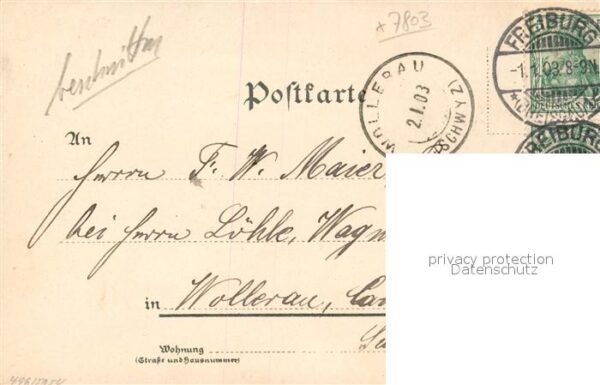 + 7803
beschnitten
FREIBURG
-1.1.03.8-9N.
Postkarte
WOLLERAU
2.1.03
(SCHWYZ)
FREIBURG
An
Herrn F. W. Maier,
bei Herrn Löhle, Wagn
in Wollerau, Can
privacy protection
Datenschutz
Wohnung
(Straße und Hausnummer)